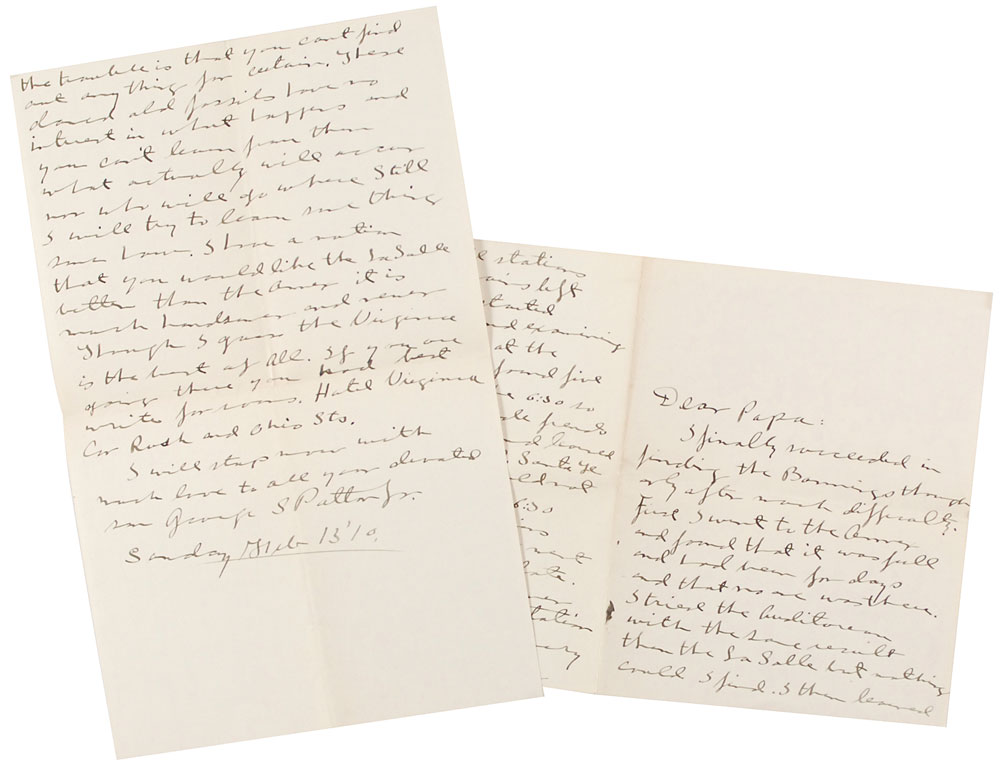 the trouble is that you cant find
out any thing for certain. These
old fossils have no
interest in what happens and
you can't learn from them
what actually will occur
nor who will go where Still
I will try to learn some thing
some how. I have a notion
that you would like the La Salle
better than the Annex it is
much handsomer and newer
Though I guess the Virginia
is the best of all. If you are
going there you had best
write for rooms. Hotel Virginia
Cor Rush and Ohio Sts.
I will stop now with
much love to all your devoted
son George S Patton Jr.
Sunday Feb 13 '10.
stations
left
started
nd examining
at the
found five
6:30 so
friends
nd learned
Santa Fe
6:30
tation
Dear Papa:
I finally succeeded in
finding the Bannings though
only after much difficulty.
First I went to the Annex
and found that it was full
and had been for days
and that no one was there.
I tried the Auditorium
with the same result
then the La Salle but nothing
could I find. I then learned